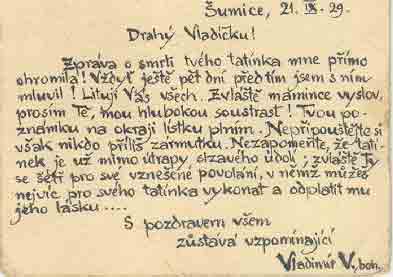 Šumice, 21. IX. 29.
Drahý Vladíčku!
Zpráva o smrti tvého tatínka mne přímo
ohromila! Vždyť ještě pět dní předtím jsem s ním
mluvil! Lituji Vás všech. Zvláště mamince vyslov,
prosím Tě, mou hlubokou soustrast! Tvou po-
známku na okraji lístku plním. Nepřipouštějte si
však nikdo příliš zármutku. Nezapomeňte, že tatí-
nek je už mimo útrapy slzavého údolí; zvláště Ty
se šetři pro své vznešené povolání, v němž můžeš
nejvíc pro svého tatínka vykonat a odplatit mu
jeho lásku....
S pozdravem všem
zůstává vzpomínající
Vladimír V., boh.